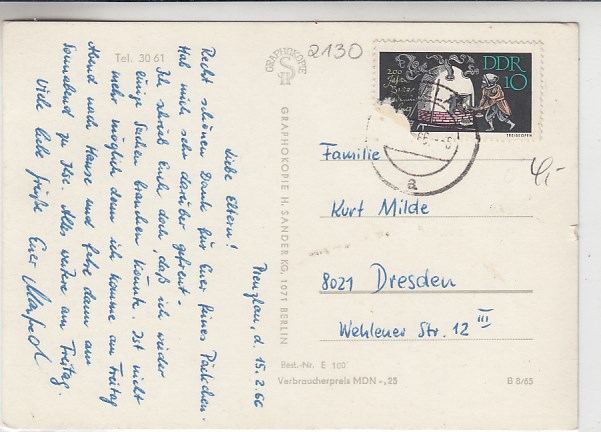 Tel. 30 61
GRAPHOKOPIE
2130
DDR
10
200
Jahre
TREIBEOFEN
66
a
4,-
Prenzlau, d. 15.2.66
Liebe Eltern!
Recht schönen Dank für Euer feines Päckchen.
Hab mich sehr darüber gefreut.
Ich schrieb Euch doch, daß ich wieder
einige Sachen brauchen könnte. Ist nicht
mehr möglich, denn ich komme am Freitag
Abend nach Hause und fahre dann am
Sonnabend zu Ilse. Alles weitere am Freitag.
Viele liebe Grüße Euer Manfred
GRAPHOKOPIE H. SANDER KG, 1071 BERLIN
Familie
Kurt Milde
8021 Dresden
Wehlener Str. 12 III
Best.-Nr. E 100
Verbraucherpreis MDN -,25
B 8/65